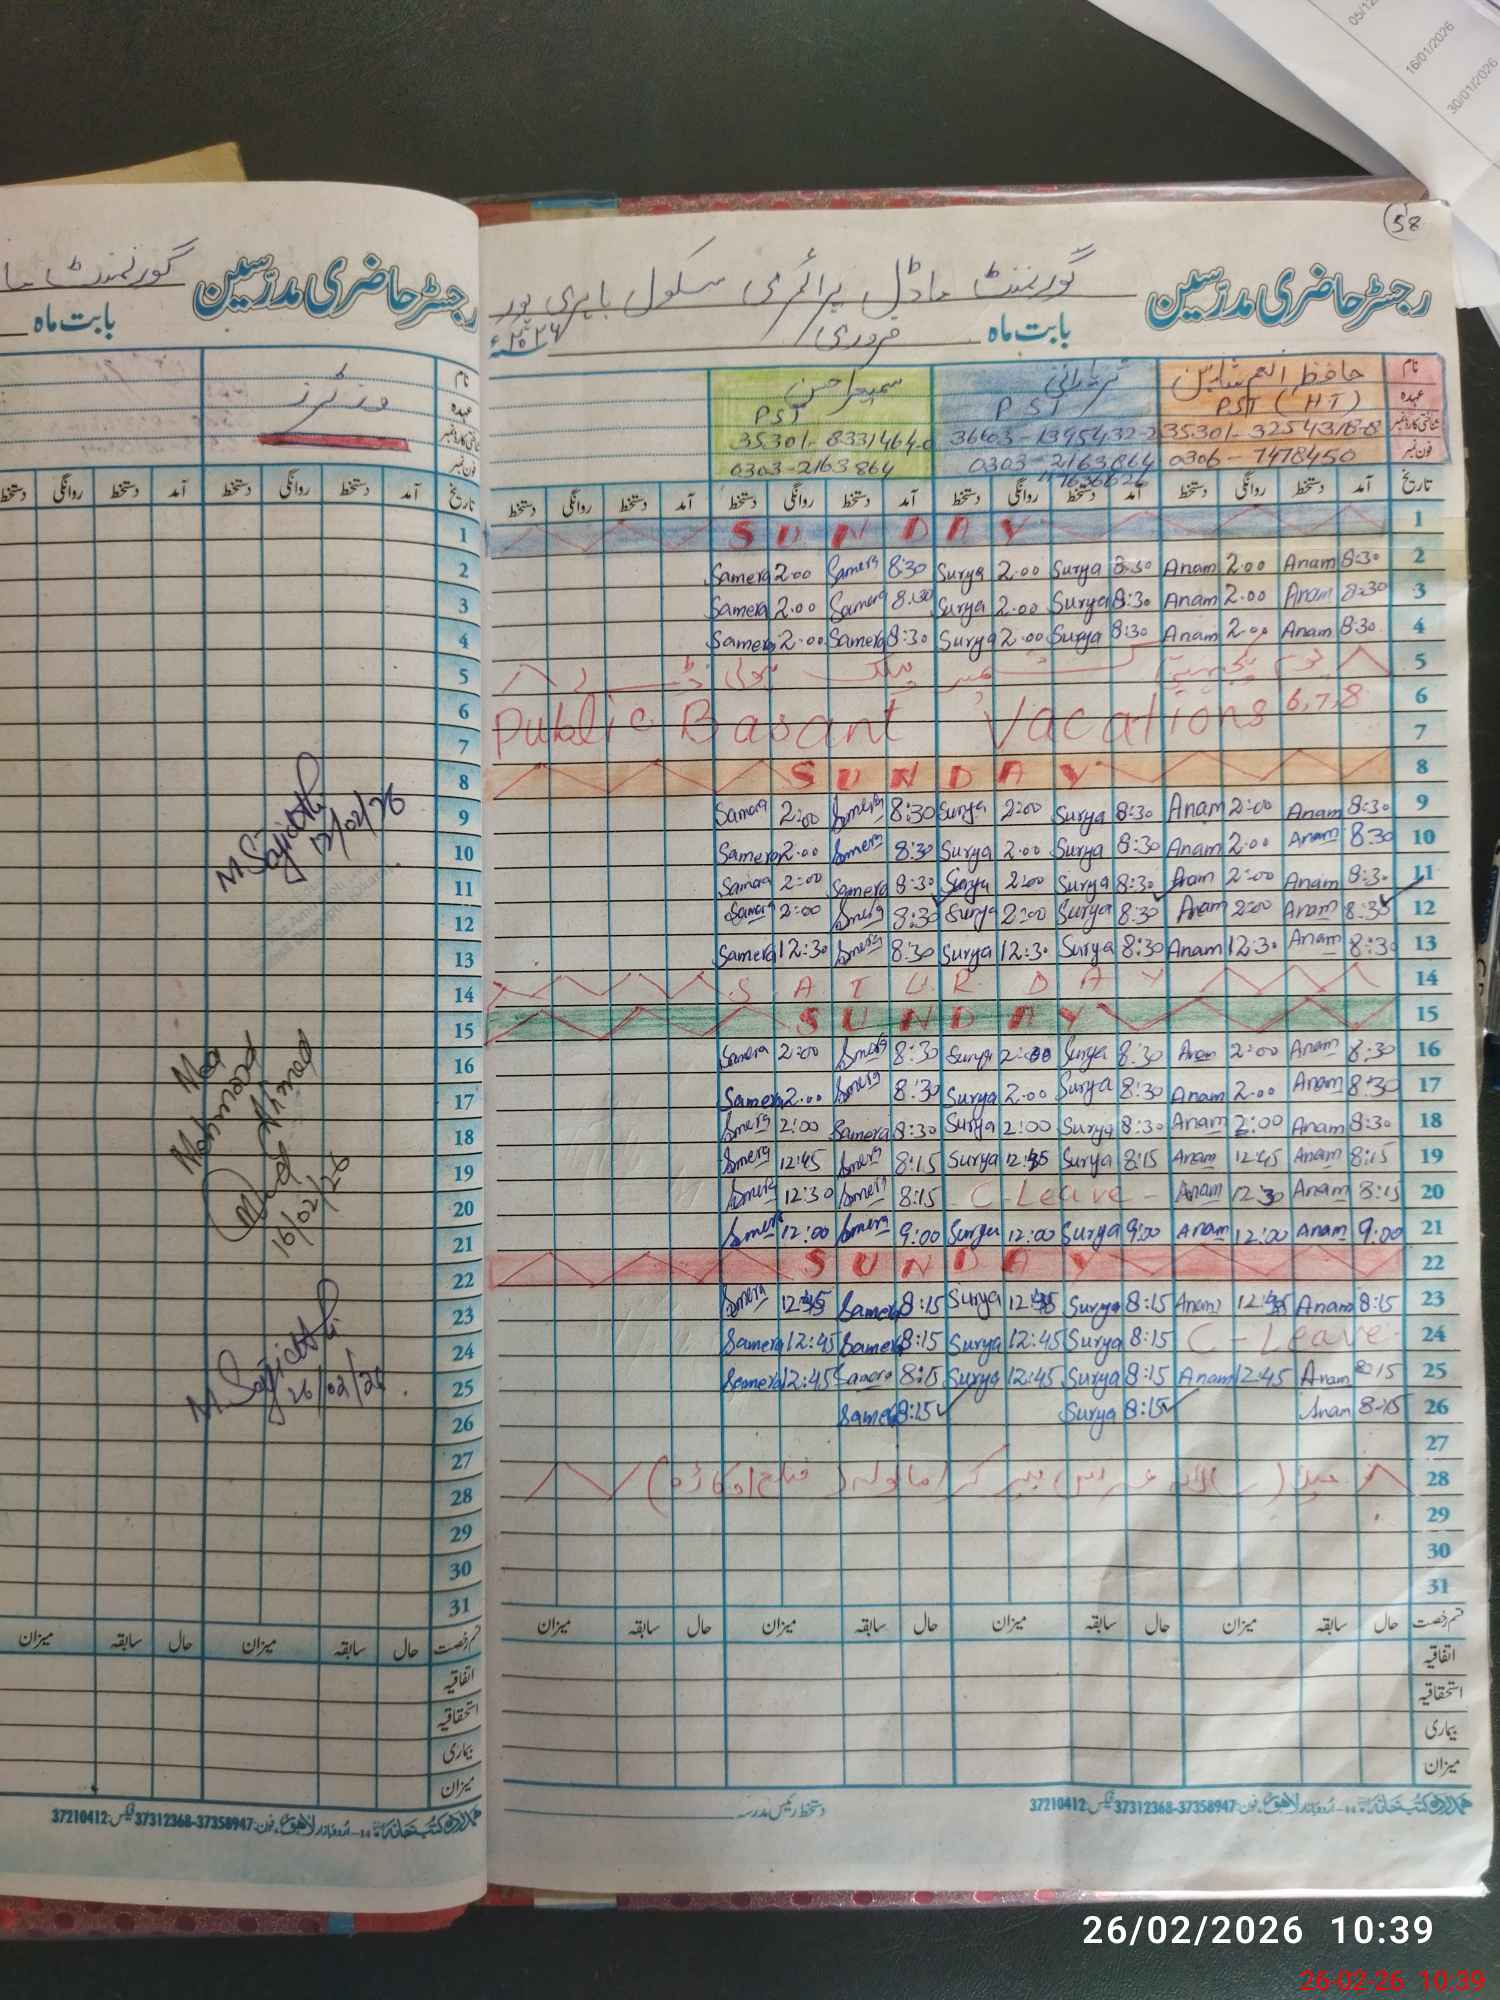 05/12
16/01/2026
30/01/2026
58
رجسٹر حاضری مدرسین گورنمنٹ ماڈل پرائمری سکول بابری پور
بابت ماہ فروری ۲۰۲۶ء
نام حافظ انعم شاہین ثریا بانی سمیرا حسن
عہدہ PST (HT) PST PST
شناختی کارڈ نمبر 36603-1395432-2
فون نمبر 0306-7478450 0303-2163864 0303-2163864
تاریخ آمد دستخط روانگی دستخط آمد دستخط روانگی دستخط آمد دستخط روانگی دستخط آمد دستخط روانگی دستخط
SUNDAY 1
Samera 2.00 Samera 8:30 Surya 2.00 Surya 8:30 Anam 2.00 Anam 8:30 2
Samera 2.00 Samera 8:30 Surya 2.00 Surya 8:30 Anam 2.00 Anam 8:30 3
Samera 2.00 Samera 8:30 Surya 2.00 Surya 8:30 Anam 2.00 Anam 8:30 4
یوم یکجہتی کشمیر پبلک ہولی ڈے 5
Public Basant Vacations 6,7,8 6
7
SUNDAY 8
Samera 2:00 Samera 8:30 Surya 2:00 Surya 8:30 Anam 2:00 Anam 8:30 9
Samera 2.00 Samera 8:30 Surya 2.00 Surya 8:30 Anam 2.00 Anam 8:30 10
Samera 2:00 Samera 8:30 Surya 2:00 Surya 8:30 Anam 2:00 Anam 8:30 11
Samera 2:00 Samera 8:30 Surya 2:00 Surya 8:30 Anam 2:00 Anam 8:30 12
Samera 12:30 Samera 8:30 Surya 12:30 Surya 8:30 Anam 12:30 Anam 8:30 13
SATURDAY 14
SUNDAY 15
Samera 2:00 Samera 8:30 Surya 2:00 Surya 8:30 Anam 2:00 Anam 8:30 16
Samera 2.00 Samera 8:30 Surya 2.00 Surya 8:30 Anam 2.00 Anam 8:30 17
Samera 2:00 Samera 8:30 Surya 2:00 Surya 8:30 Anam 2:00 Anam 8:30 18
Samera 12:45 Samera 8:15 Surya 12:45 Surya 8:15 Anam 12:45 Anam 8:15 19
Samera 12:30 Samera 8:15 - C-Leave - Anam 12:30 Anam 8:15 20
Samera 12:00 Samera 9:00 Surya 12:00 Surya 9:00 Anam 12:00 Anam 9:00 21
SUNDAY 22
Samera 12:45 Samera 8:15 Surya 12:45 Surya 8:15 Anam 12:45 Anam 8:15 23
Samera 12:45 Samera 8:15 Surya 12:45 Surya 8:15 C-Leave 24
Samera 12:45 Samera 8:15 Surya 12:45 Surya 8:15 Anam 12:45 Anam 8:15 25
Samera 8:15 Surya 8:15 Anam 8:15 26
27
28
29
30
31
قسم رخصت حال سابقہ میزان حال سابقہ میزان حال سابقہ میزان حال سابقہ میزان
اتفاقیہ
استحقاقیہ
بیماری
میزان
دستخط رئیس مدرسہ
اردو بازار لاہور، فون: 37358947-37312368 فیکس: 37210412
رجسٹر حاضری مدرسین گورنمنٹ ما
بابت ماہ
نام
عہدہ وزٹرز
شناختی کارڈ نمبر
فون نمبر
تاریخ آمد دستخط روانگی دستخط آمد دستخط روانگی دستخط
1
2
3
4
5
6
7
8
9
10
11
12
13
14
15
16
17
18
19
20
21
22
23
24
25
26
27
28
29
30
31
M Sajid
12/02/26
19/02/26
M Sajid
26/02/26
قسم رخصت حال سابقہ میزان حال سابقہ میزان
اتفاقیہ
استحقاقیہ
بیماری
میزان
اردو بازار لاہور، فون: 37358947-37312368 فیکس: 37210412
26/02/2026 10:39
26-02-26 10:39